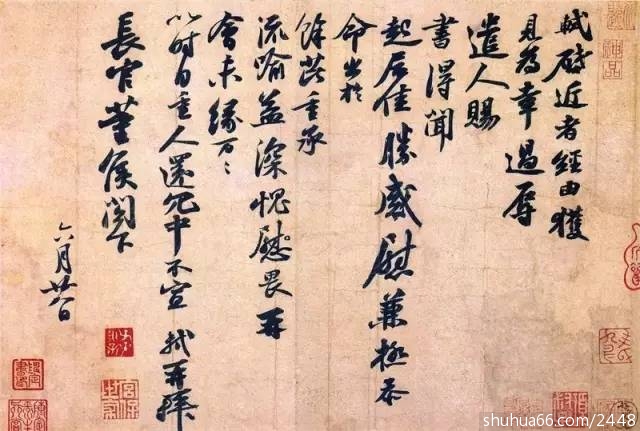 軾啟近者經由獲
見為幸過辱
遣人賜
書得聞
起居佳勝感慰兼極忝
命出於
餘芘重承
流喻益深愧慰畏再
會未緣万〻
以時自重人還冗中不宣軾再拜
長官董侯閣下
六月廿八日
shuhua66.com/2448